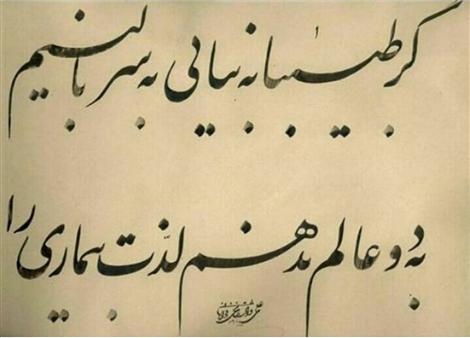 گر طبیبانه بیایی به سر بالینم
به دو عالم ندهم لذت بیماری را